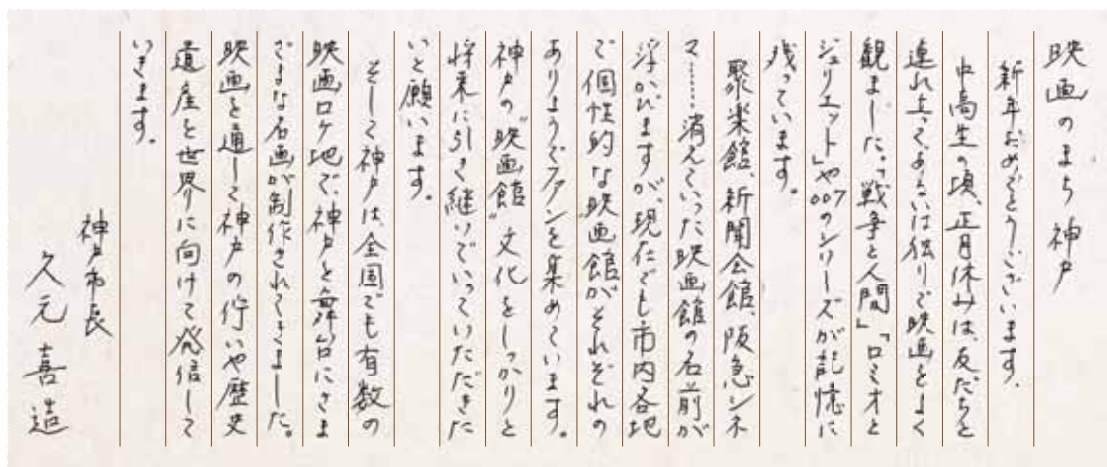 映画のまち 神戸
新年おめでとうございます。
中高生の頃、正月休みは、友だちと
連れ立って、あるいは独りで映画をよく
観ました。「戦争と人間」「ロミオと
ジュリエット」や007のシリーズが記憶に
残っています。
聚楽館、新聞会館、阪急シネ
マ……消えていった映画館の名前が
浮かびますが、現在でも市内各地
で個性的な映画館がそれぞれの
ありようでファンを集めています。
神戸の“映画館”文化をしっかりと
将来に引き継いでいっていただきた
いと願います。
そして神戸は、全国でも有数の
映画ロケ地で、神戸を舞台にさま
ざまな名画が制作されてきました。
映画を通して神戸の佇いや歴史
遺産を世界に向けて発信して
いきます。
神戸市長
久元喜造